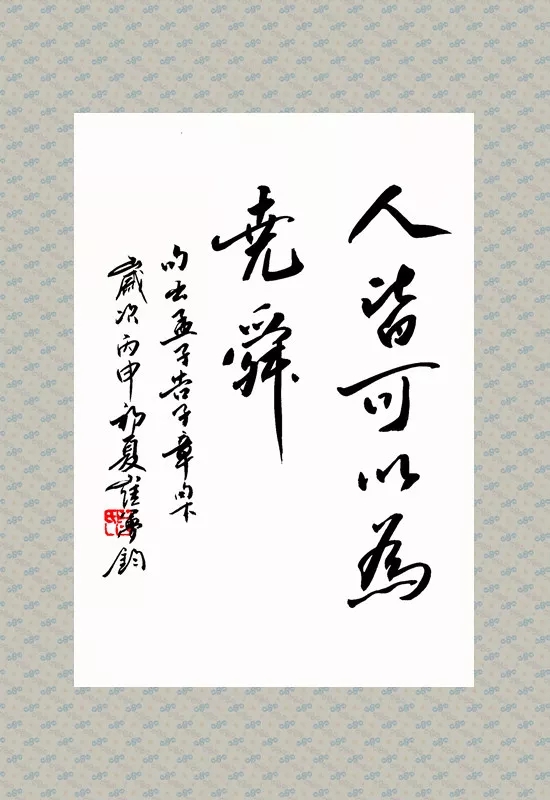 人皆可以為
堯舜
句出孟子告子章句下
歲次丙申初夏崔學鈞